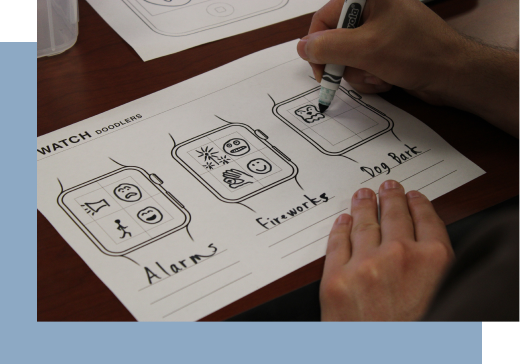 WATCH DOODLERS
Alarms
Fireworks
Dog Bark